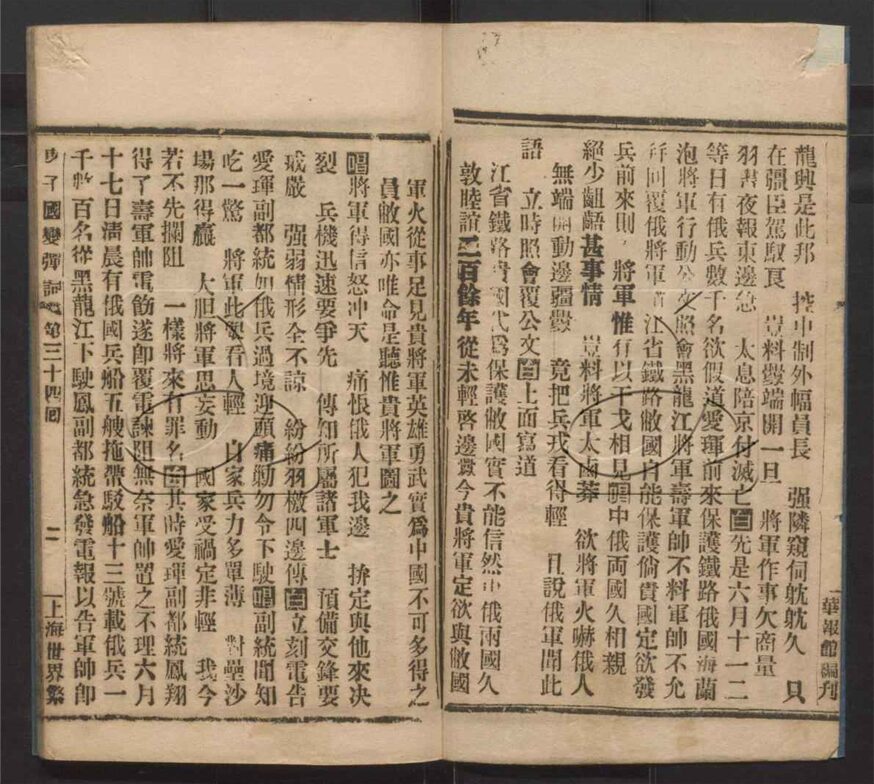 華報館編刊
龍興是此邦　控中制外幅員長　强隣窺伺躭躭久　只
在疆臣駕馭良　豈料釁端開一旦　將軍作事欠商量
羽書夜報東邊急　太息陪京付滅亡白先是六月十一二
等日有俄兵數千名欲假道愛琿前來保護鐵路俄國海蘭
泡將軍行動公文照會黑龍江將軍壽軍帥不料軍帥不允
并回覆俄將軍 江省鐵路敝國自能保護倘貴國定欲發
兵前來則 將軍惟有以干戈相見唱中俄兩國久相親
絕少齟齬甚事情　豈料將軍太鹵莽　欲將軍火嚇俄人
無端開動邊疆釁　竟把兵戎看得輕　且說俄軍聞此
語　立時照會覆公文白上面寫道
江省鐵路貴國代爲保護敝國實不能信然中俄兩國久
敦睦誼二百餘年從未輕啓邊釁今貴將軍定欲與敝國
軍火從事足見貴將軍英雄勇武實爲中國不可多得之
員敝國亦唯命是聽惟貴將軍圖之
唱將軍得信怒冲天　痛恨俄人犯我邊　拚定與他來决
裂　兵機迅速要爭先　傳知所屬諸軍士　預備交鋒要
戒嚴　强弱情形全不諒　紛紛羽檄四邊傳白立刻電告
愛琿副都統如俄兵過境迎頭痛勦勿令下駛唱副統聞知
吃一驚　將軍此舉看人輕　自家兵力多單薄　對壘沙
場那得贏　大胆將軍思妄動　國家受禍定非輕　我今
若不先攔阻　一樣將來有罪名白其時愛琿副都統鳳翔
得了壽軍帥電飭遂卽覆電諫阻無奈軍帥置之不理六月
十七日淸晨有俄國兵船五艘拖帶駁船十三號載俄兵一
千數百名從黑龍江下駛鳳副都統急發電報以告軍帥卽
庚子國變彈詞　第三十四回　二　上海世界繁